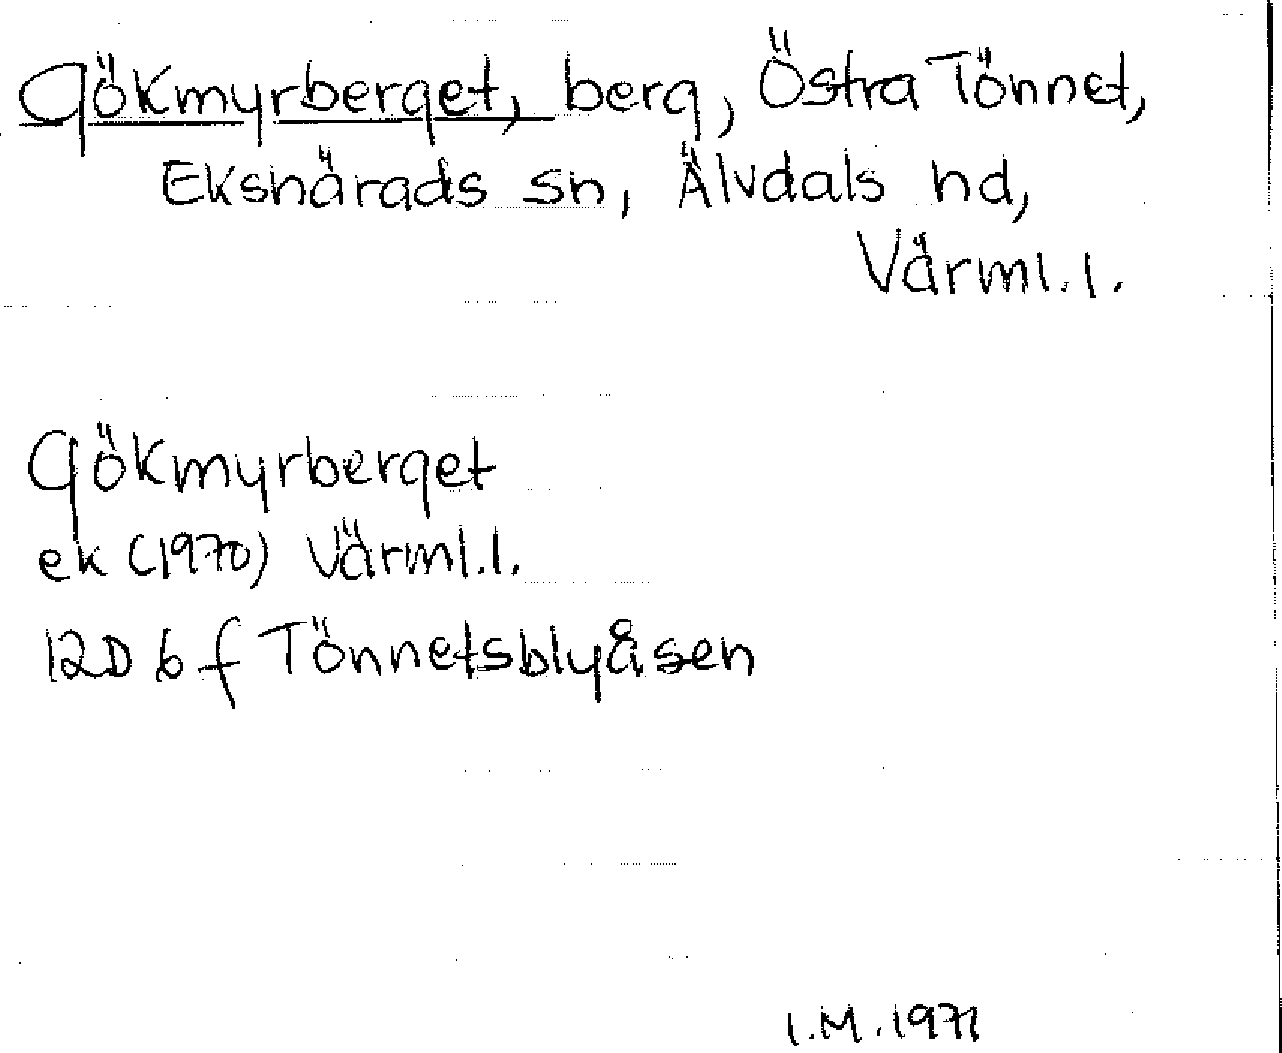 Gökmyrberget, berg, Östra Tönnet,
Ekshärads sn, Älvdals hd,
Värml. l.
Gökmyrberget
ek (1970) Värml. l.
12D 6 f Tönnetsblyåsen
I.M. 1971